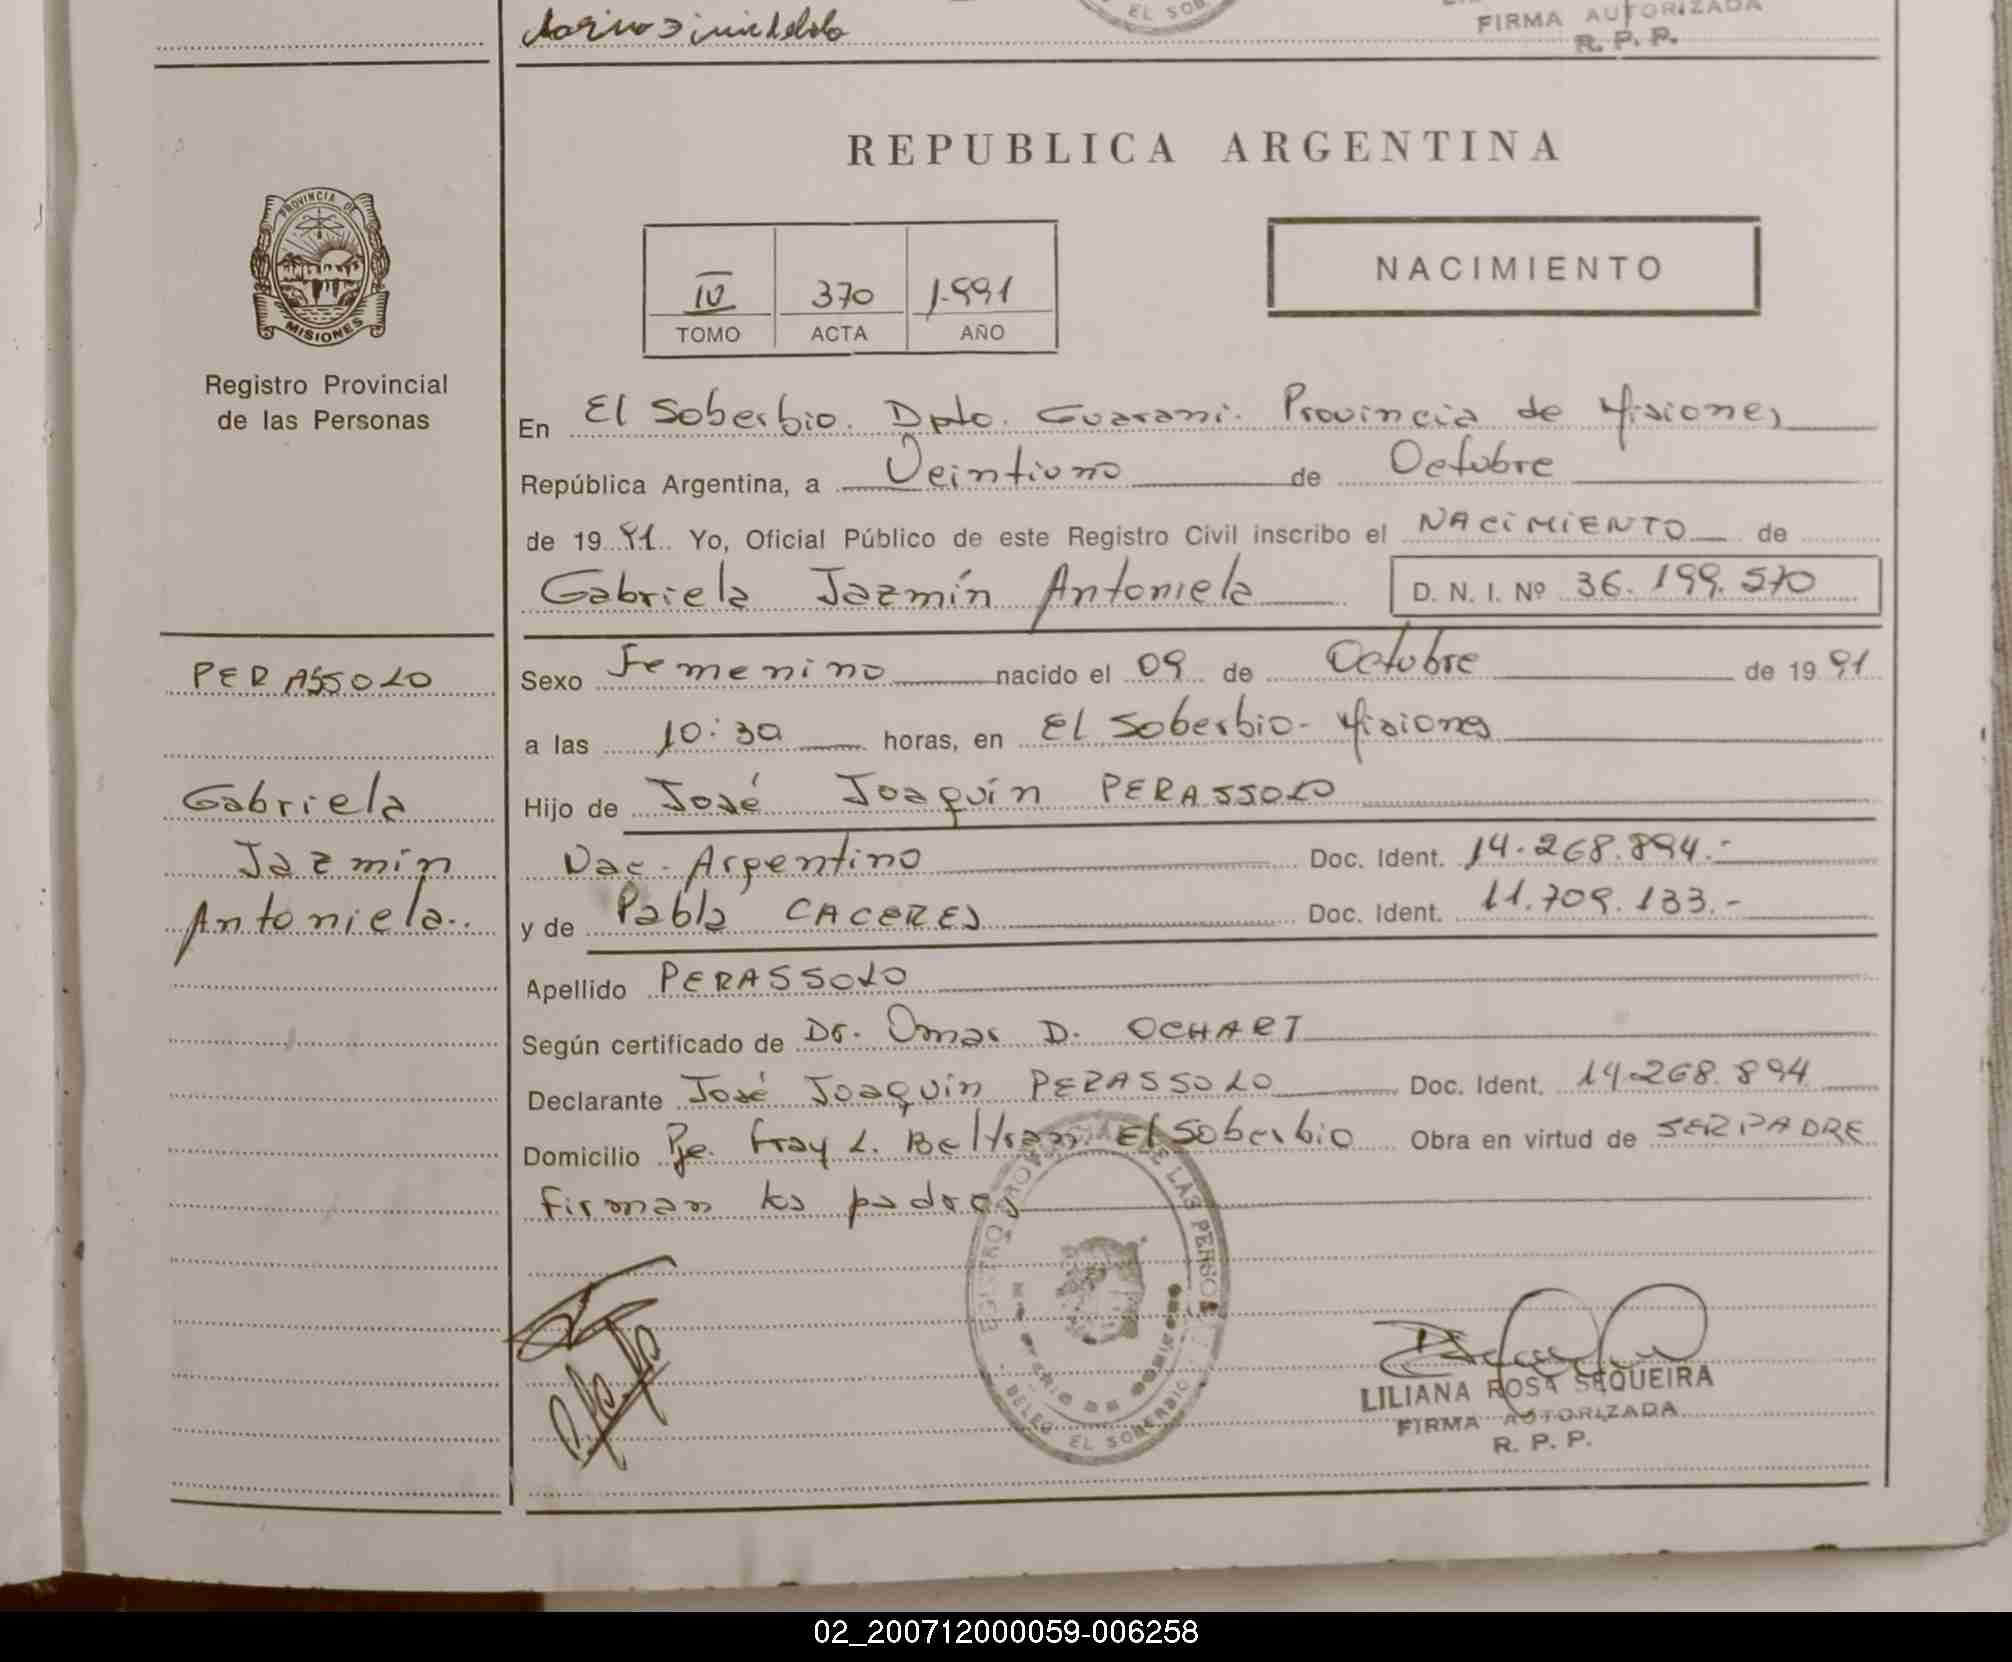 EL SOB
FIRMA AUTORIZADA
R. P. P.
PROVINCIA DE
MISIONES
Registro Provincial
de las Personas
REPUBLICA ARGENTINA
IV 370 1.991
TOMO ACTA AÑO
NACIMIENTO
En El Soberbio. Dpto. Guaraní. Provincia de Misiones
República Argentina, a Veintiuno de Octubre
de 19 91 Yo, Oficial Público de este Registro Civil inscribo el NACIMIENTO de
Gabriela Jazmín Antoniela D. N. I. Nº 36.199.570
PERASSOLO
Gabriela
Jazmín
Antoniela.
Sexo Femenino nacido el 09 de Octubre de 19 91
a las 10:30 horas, en El Soberbio - Misiones
Hijo de José Joaquín PERASSOLO
Nac. Argentino Doc. Ident. 14.268.894.-
y de Pabla CACERES Doc. Ident. 11.709.133.-
Apellido PERASSOLO
Según certificado de Dr. Omar D. OCHART
Declarante José Joaquín PERASSOLO Doc. Ident. 14.268.894
Domicilio Pje. Fray L. Beltram. El Soberbio Obra en virtud de SER PADRE
Firman los padres
REGISTRO PROVINCIAL DE LAS PERSO
DELEG EL SOBERBIO
LILIANA ROSA SEQUEIRA
FIRMA AUTORIZADA
R. P. P.
02_200712000059-006258